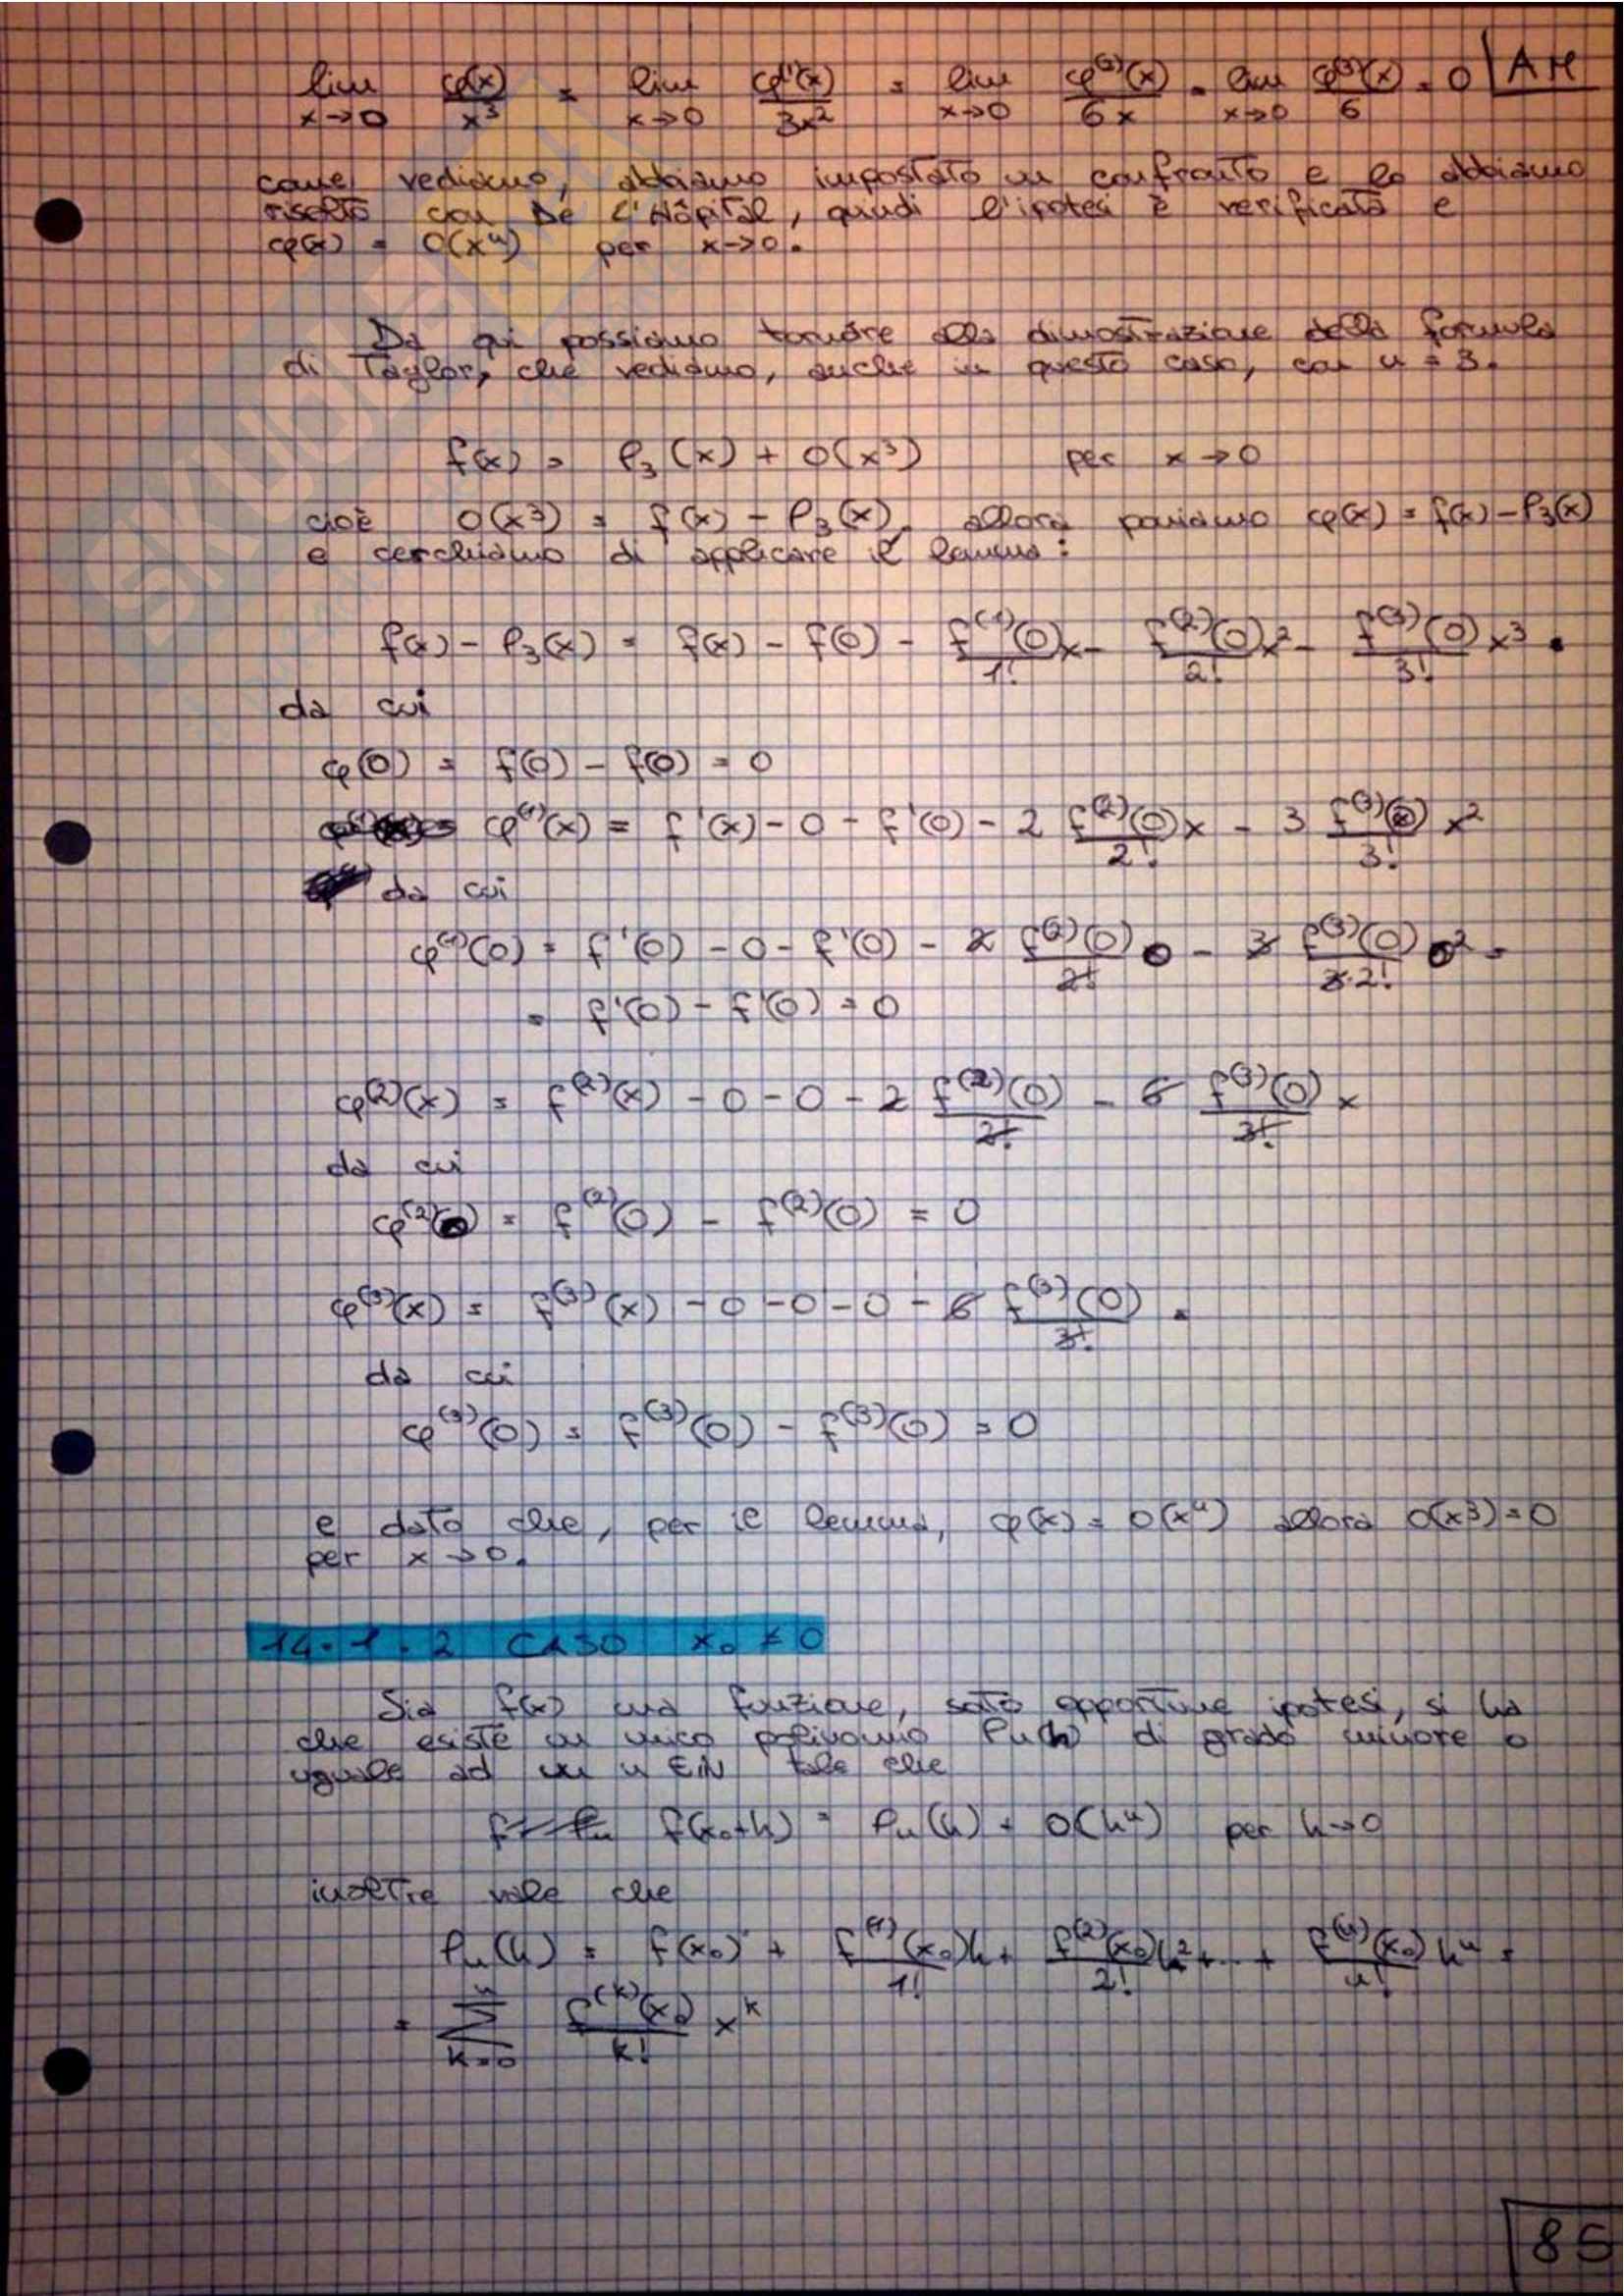 lim x→0 φ(x)/x³ = lim x→0 φ⁽¹⁾(x)/3x² = lim x→0 φ⁽²⁾(x)/6x = lim x→0 φ⁽³⁾(x)/6 = 0 AM
come vediamo, abbiamo impostato un confronto e lo abbiamo
risolto con De L'Hôpital, quindi l'ipotesi è verificata e
φ(x) = o(xⁿ) per x→0.
Da qui possiamo tornare alla dimostrazione della formula
di Taylor, che vediamo, anche in questo caso, con n = 3.
f(x) = P₃(x) + o(x³) per x→0
cioè o(x³) = f(x) - P₃(x), allora poniamo φ(x) = f(x) - P₃(x)
e cerchiamo di applicare il lemma:
f(x) - P₃(x) = f(x) - f(0) - f⁽¹⁾(0)/1! x - f⁽²⁾(0)/2! x² - f⁽³⁾(0)/3! x³.
da cui
φ(0) = f(0) - f(0) = 0
φ⁽¹⁾(x) = f'(x) - 0 - f'(0) - 2 f⁽²⁾(0)/2! x - 3 f⁽³⁾(0)/3! x²
da cui
φ⁽¹⁾(0) = f'(0) - 0 - f'(0) - 2 f⁽²⁾(0)/2! 0 - 3 f⁽³⁾(0)/3·2! 0² =
= f'(0) - f'(0) = 0
φ⁽²⁾(x) = f⁽²⁾(x) - 0 - 0 - 2 f⁽²⁾(0)/2! - 6 f⁽³⁾(0)/3! x
da cui
φ⁽²⁾(0) = f⁽²⁾(0) - f⁽²⁾(0) = 0
φ⁽³⁾(x) = f⁽³⁾(x) - 0 - 0 - 0 - 6 f⁽³⁾(0)/3!.
da cui
φ⁽³⁾(0) = f⁽³⁾(0) - f⁽³⁾(0) = 0
e dato che, per il lemma, φ(x) = o(xⁿ) allora o(x³) = 0
per x→0.
14.1.2 CASO x₀ ≠ 0
Sia f(x) una funzione, sotto opportune ipotesi, si ha
che esiste un unico polinomio Pn(h) di grado minore o
uguale ad un n ∈ ℕ tale che
f(x₀+h) = Pn(h) + o(hⁿ) per h→0
inoltre vale che
Pn(h) = f(x₀) + f⁽¹⁾(x₀)/1! h + f⁽²⁾(x₀)/2! h² + ... + f⁽ⁿ⁾(x₀)/n! hⁿ =
= Σ k=0 n f⁽ᵏ⁾(x₀)/k! xᵏ
85